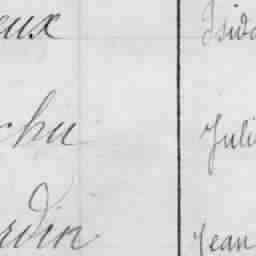 eux Isido
chu Juli
rdin Jean